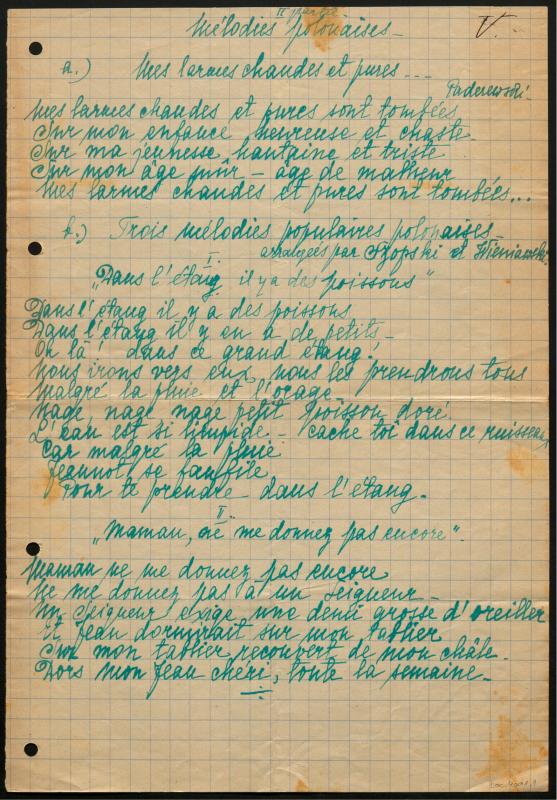 II partie
Mélodies polonaises – V.
a.) Mes larmes chaudes et pures ...
Paderewski.
Mes larmes chaudes et pures sont tombées
Sur mon enfance heureuse et chaste
Sur ma jeunesse hautaine et triste
Sur mon âge mûr – âge de malheur
Mes larmes chaudes et pures sont tombées...
b.) Trois mélodies populaires polonaises –
arrangées par Szopski et Wieniawski
I.
„Dans l'étang, il y a des poissons"
Dans l'étang il y a des poissons
Dans l'étang il y en a de petits –
Oh là! dans ce grand étang!
Nous irons vers eux, nous les prendrons tous
Malgré la pluie et l'orage
Nage, nage nage petit poisson doré.
L'eau est si limpide – cache toi dans ce ruisseau
Car malgré la pluie
Jeannot se faufile
Pour te prendre – dans l'étang –
II
„Maman, ne me donnez pas encore".
Maman ne me donnez pas encore
Ne me donnez pas à un Seigneur –
Un Seigneur exige une demi grosse d'oreiller
Et Jean dormirait sur mon tablier
Sur mon tablier recouvert de mon châle –
Dors mon Jean chéri, toute la semaine –